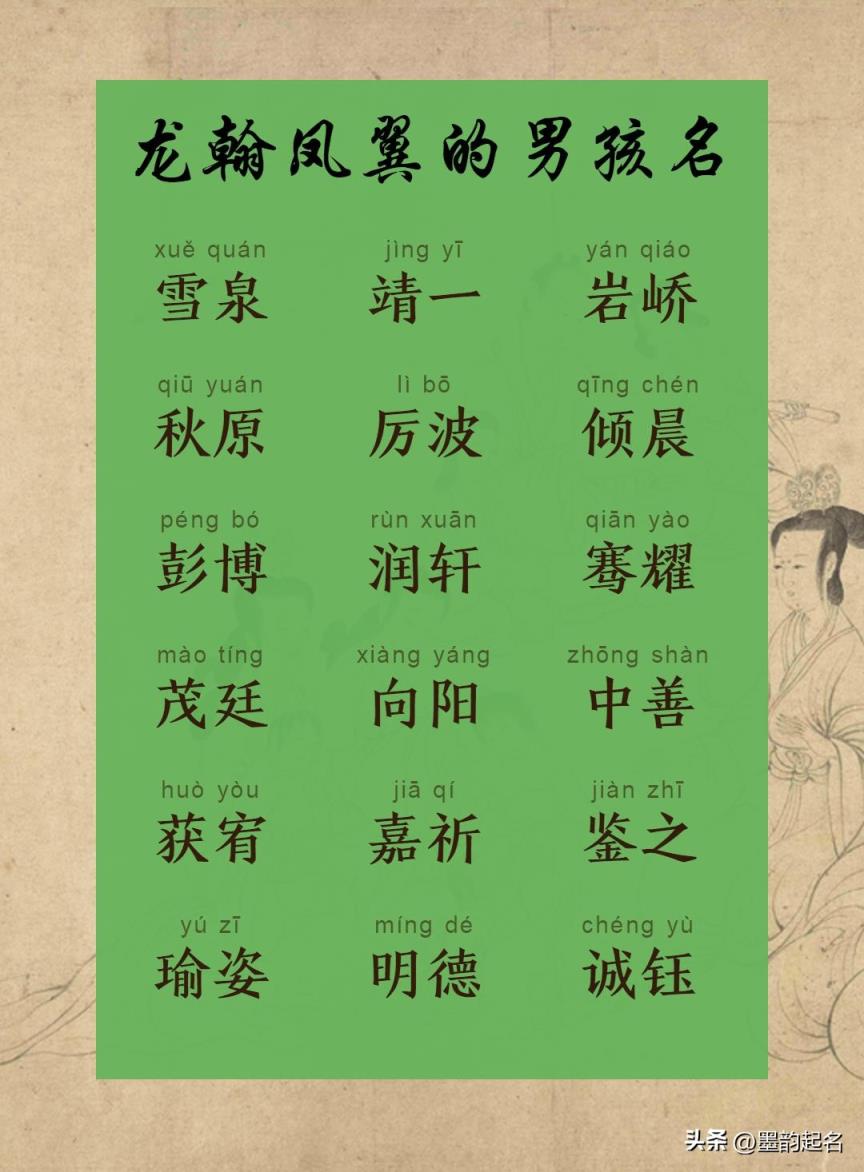 龙翰凤翼的男孩名
xuě quán jìng yī yán qiáo
雪泉 靖一 岩峤
qiū yuán lì bō qīng chén
秋原 厉波 倾晨
péng bó rùn xuān qiān yào
彭博 润轩 骞耀
mào tíng xiàng yáng zhōng shàn
茂廷 向阳 中善
huò yòu jiā qí jiàn zhī
获宥 嘉祈 鉴之
yú zī míng dé chéng yù
瑜姿 明德 诚钰
头条 @墨韵起名